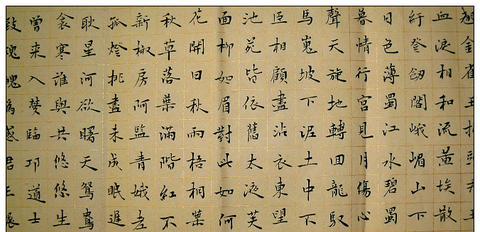 翹金雀玉
血淚相和流黃埃散
紆登劍閣峨嵋山下
日色薄蜀江水碧蜀
暮情行宮見月傷心
聲天旋地轉回龍馭
馬嵬坡下泥土中不
臣相顧盡沾衣東望
池苑皆依舊太液芙
面柳如眉對此如何
花開日秋雨梧桐葉
秋草落葉滿階紅不
新椒房阿監青娥老
孤燈挑盡未成眠遲
耿星河欲曙天鴛鴦
衾寒誰與共悠悠生
曾來入夢臨邛道士
致魂魄為感君王輾